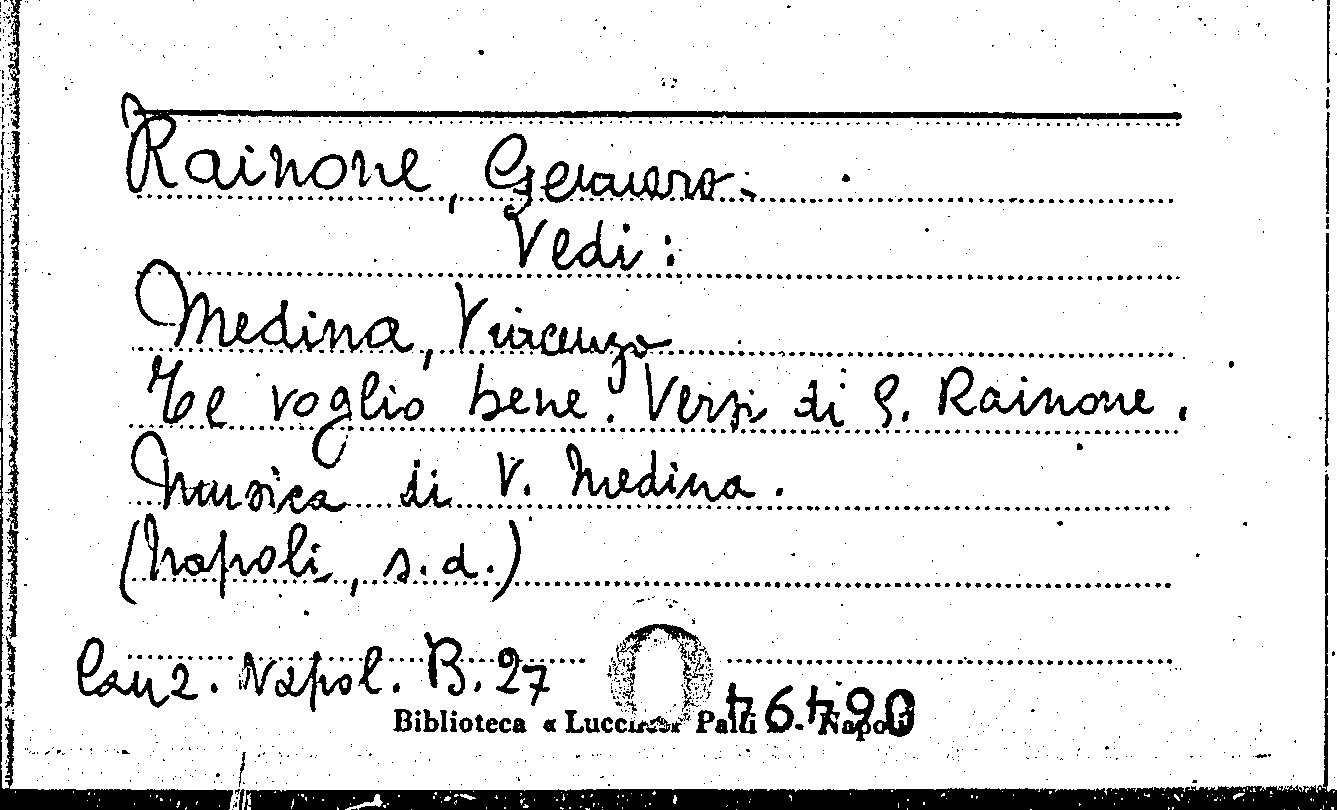 Rainone, Gennaro.
Vedi:
Medina, Vincenzo
Te voglio bene. Versi di G. Rainone.
Musica di V. Medina.
(Napoli, s.d.)
Canz. Napol. B. 27
Biblioteca « Lucchesi Palli » - Napoli